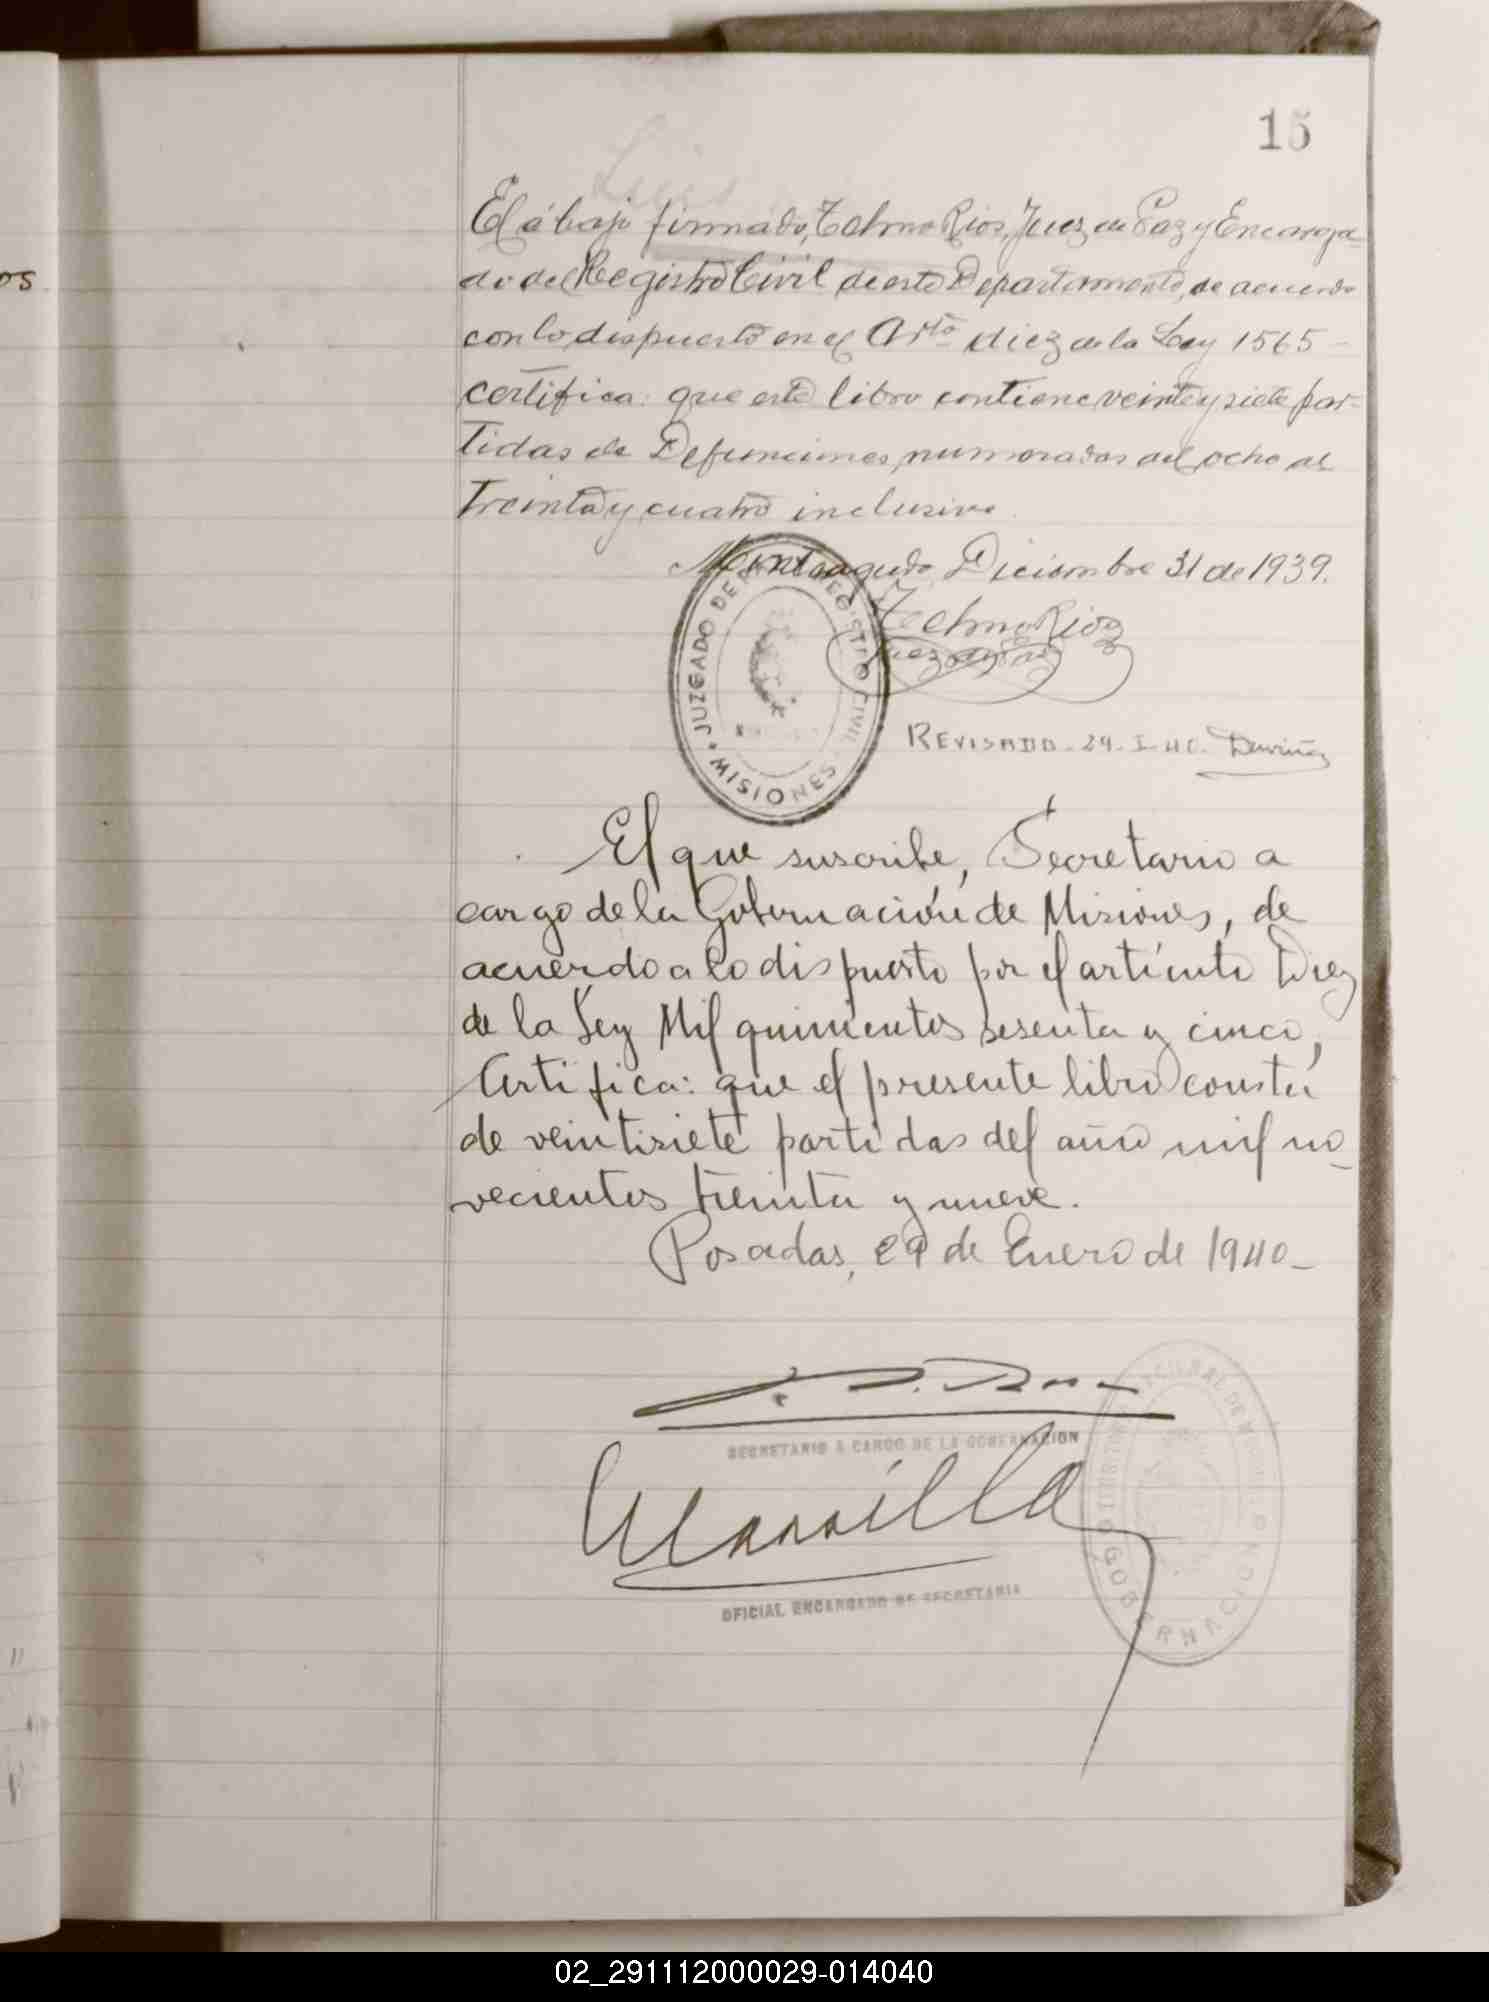 15
os
El abajo firmado, Telmo Rios, Juez de Paz y Encarga-
do del Registro Civil de este Departamento, de acuerdo
con lo dispuesto en el Arto diez de la Ley 1565 -
certifica: que este libro contiene veinte y siete par-
tidas de Defunciones numeradas del ocho al
treinta y cuatro inclusive.
Monteagudo, Diciembre 31 de 1939.
Telmo Rios
Juez de Paz
JUZGADO DE REGISTRO CIVIL
MISIONES
REVISADO - 29 - I - 40.
El que suscribe, Secretario a
cargo de la Gobernación de Misiones, de
acuerdo a lo dispuesto por el artículo Diez
de la Ley Mil quinientos sesenta y cinco,
Certifica: que el presente libro consta
de veintisiete partidas del año mil no-
vecientos treinta y nueve.
Posadas, 29 de Enero de 1940-
SECRETARIO A CARGO DE LA GOBERNACION
OFICIAL ENCARGADO DE SECRETARIA
GOBERNACION
02_291112000029-014040